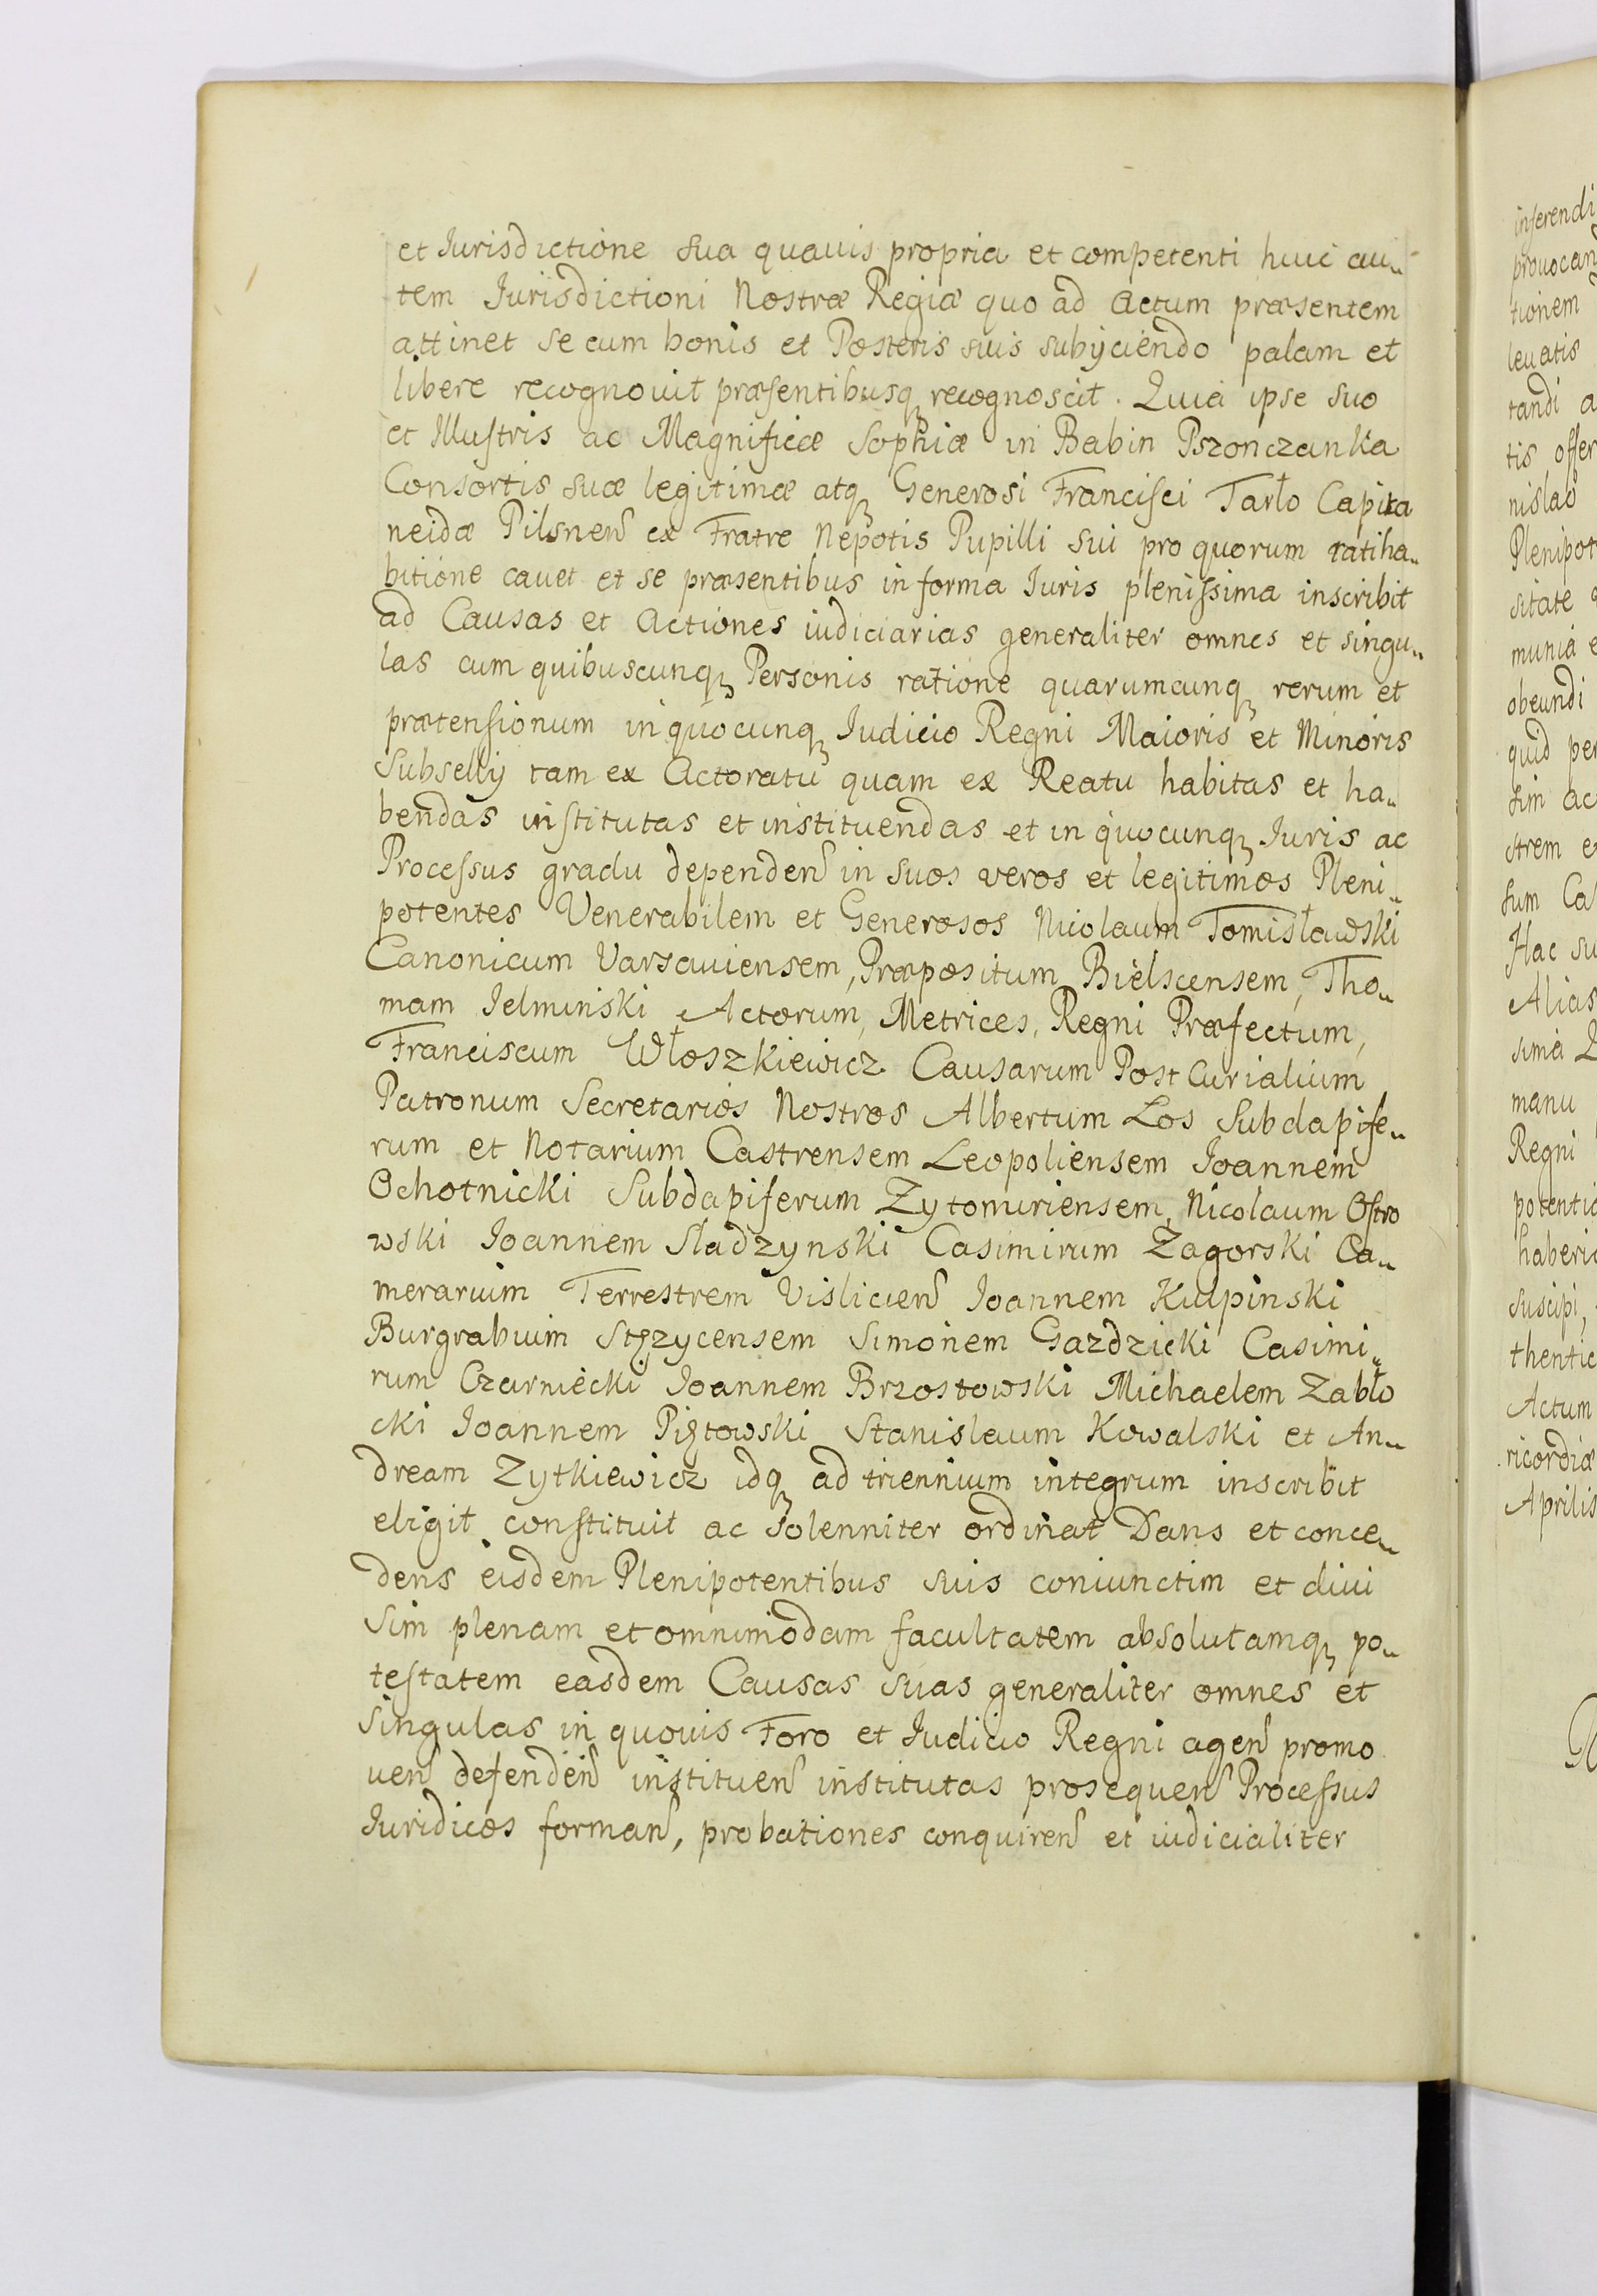 et Jurisdictione sua quauis propria et competenti huic au„
tem Jurisdictioni Nostræ Regiæ quo ad Actum præsentem
attinet se cum bonis et Posteris suis subijciendo palam et
libere recognouit præsentibusq; recognoscit. Quia ipse suo
et Illustris ac Magnificæ Sophiæ in Babin Pszonczanka
Consortis suæ legitimæ atq; Generosi Francisci Tarło Capita
neidæ Pilsnen̄ ex Fratre Nepotis Pupilli sui pro quorum ratiha„
bitione cauet et se præsentibus in forma Juris plenissima inscribit
ad Causas et Actiones iudiciarias generaliter omnes et singu„
las cum quibuscunq; Personis ratione quarumcunq; rerum et
prætensionum in quocunq; Judicio Regni Maioris et Minoris
Subsellij tam ex Actoratu quam ex Reatu habitas et ha„
bendas institutas et instituendas et in quocunq; Juris ac
Processus gradu dependen̄ in suos veros et legitimos Pleni„
potentes Venerabilem et Generosos Nicolaum Tomisławski
Canonicum Varsauiensem, Præpositum Bielscensem, Tho„
mam Jelminski Actorum, Metrices, Regni Præfectum,
Franciscum Włoszkiewicz Causarum Post Curialium
Patronum Secretarios Nostros Albertum Los Subdapife„
rum et Notarium Castrensem Leopoliensem Joannem
Ochotnicki Subdapiferum Zytomiriensem, Nicolaum Ostro
wski Joannem Sladzynski Casimirum Zagorski Ca„
merarium Terrestrem Vislicien̄ Joannem Kulpinski
Burgrabium Stęzycensem Simonem Gazdzicki Casimi„
rum Czarniecki Joannem Brzostowski Michaelem Zabło
cki Joannem Piętowski Stanislaum Kowalski et An„
dream Zytkiewicz idq; ad triennium integrum inscribit
eligit constituit ac solenniter ordinat Dans et conce„
dens eisdem Plenipotentibus suis coniunctim et diui
sim plenam et omnimodam facultatem absolutamq; po„
testatem easdem Causas suas generaliter omnes et
singulas in quouis Foro et Judicio Regni agen̄ promo
uen̄ defenden̄ instituen̄ institutas prosequen̄ Processus
Juridicos forman̄, probationes conquiren̄ et iudicialiter
inserendi
tionem
leuatis
tandi a
nislao
Plenipot
sitate
munia
obeundi
quid per
strem
sum Ca
Hac su
Alias
manu
Regni
potentia
suscipi,
thentic
Actum
ricordiæ
Aprilis